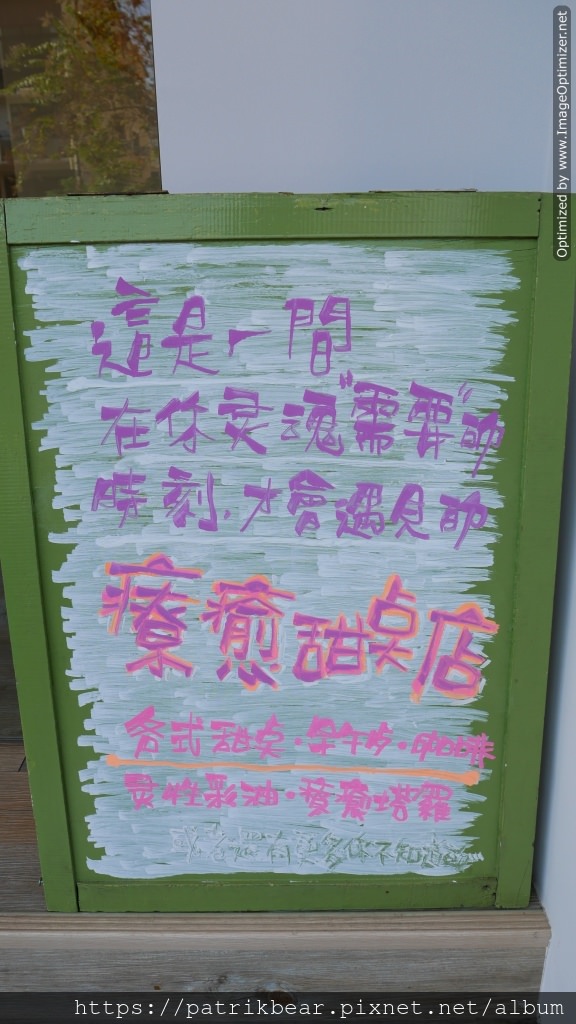 Optimized by www.ImageOptimizer.net
這是一間
在你灵魂"需要"的
時刻,才會遇見的
療癒甜点店
各式甜点·早午歺·咖啡
灵性彩油·療癒塔羅
或者還有更多你不知道的
https://patrikbear.pixnet.net/album